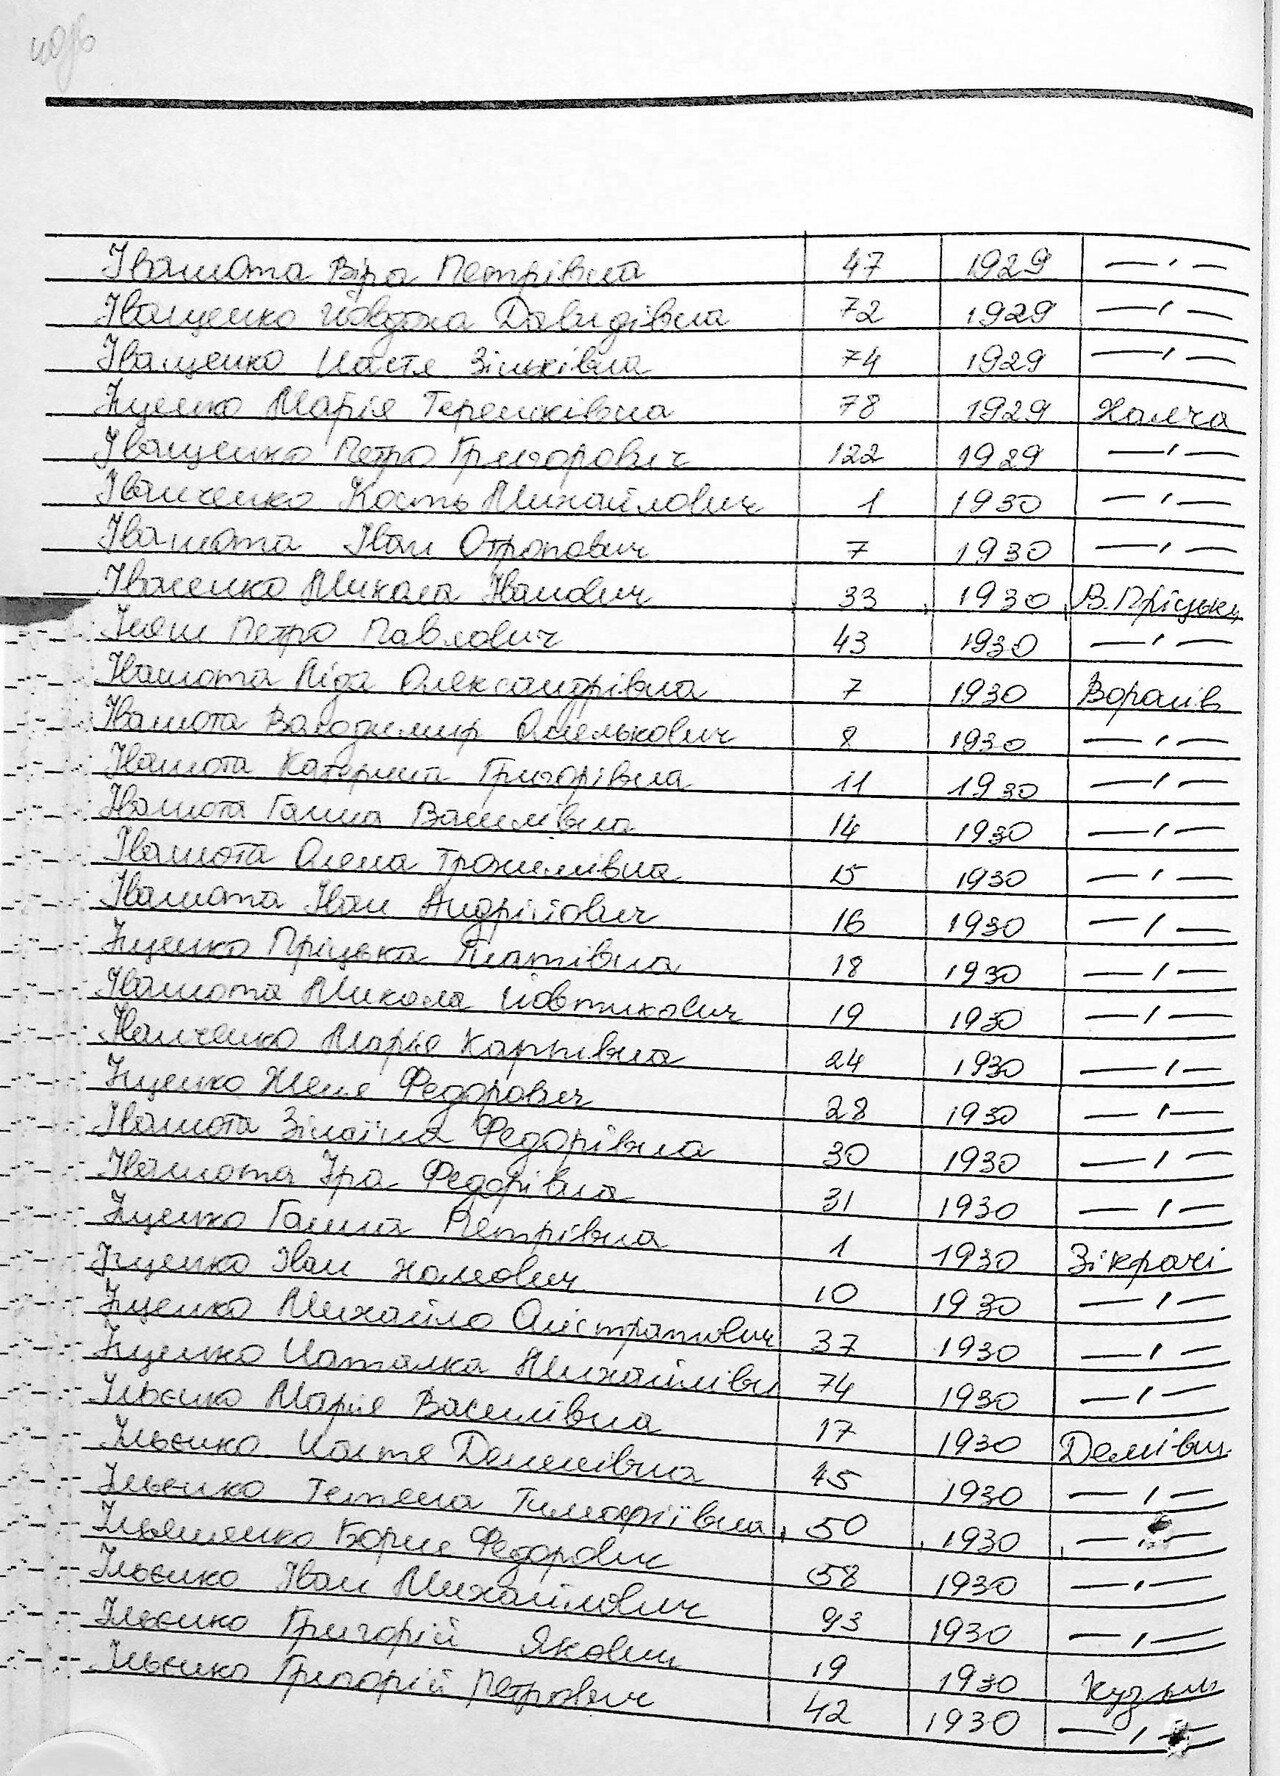 Івашота Віра Петрівна 47 1929 — ' —
Іващенко Йовдоха Давидівна 72 1929 — ' —
Іващенко Настя Зіньківна 74 1929 — ' —
Іщенко Марія Терешківна 78 1929 Халча
Іващенко Петро Григорович 122 1929 — ' —
Іванченко Кость Михайлович 1 1930 — ' —
Івашота Іван Отропович 7 1930 — ' —
Іваненко Микола Іванович 33 1930 В. Пріцьки
Ілляш Петро Павлович 43 1930 — ' —
Івашота Ліда Олександрівна 7 1930 Воронів
Івашота Володимир Омелькович 8 1930 — ' —
Івашота Катерина Григорівна 11 1930 — ' —
Івашота Ганна Василівна 14 1930 — ' —
Івашота Олена Трохимівна 15 1930 — ' —
Івашота Іван Андрійович 16 1930 — ' —
Іщенко Пріцька Гнатівна 18 1930 — ' —
Івашота Микола Йовтихович 19 1930 — ' —
Іванченко Марія Карпівна 24 1930 — ' —
Іщенко Женя Федорович 28 1930 — ' —
Івашота Зінаїна Федорівна 30 1930 — ' —
Івашота Іра Федорівна 31 1930 — ' —
Іщенко Ганна Петрівна 1 1930 Зікрачі
Іщенко Іван Хомович 10 1930 — ' —
Іщенко Михайло Олістратович 37 1930 — ' —
Іщенко Наталка Михайлівн 74 1930 — ' —
Ільєнко Марія Василівна 17 1930 Демівщ
Ільєнко Настя Денисівна 45 1930 — ' —
Ільєнко Тетяна Тимофіївна 50 1930 —
Ільяшенко Борис Федорович 58 1930 — ' —
Ільєнко Іван Михайлович 93 1930 — ' —
Ільєнко Григорій Якович 19 1930 Кузьм
Ільєнко Григорій Петрович 42 1930 — ' —